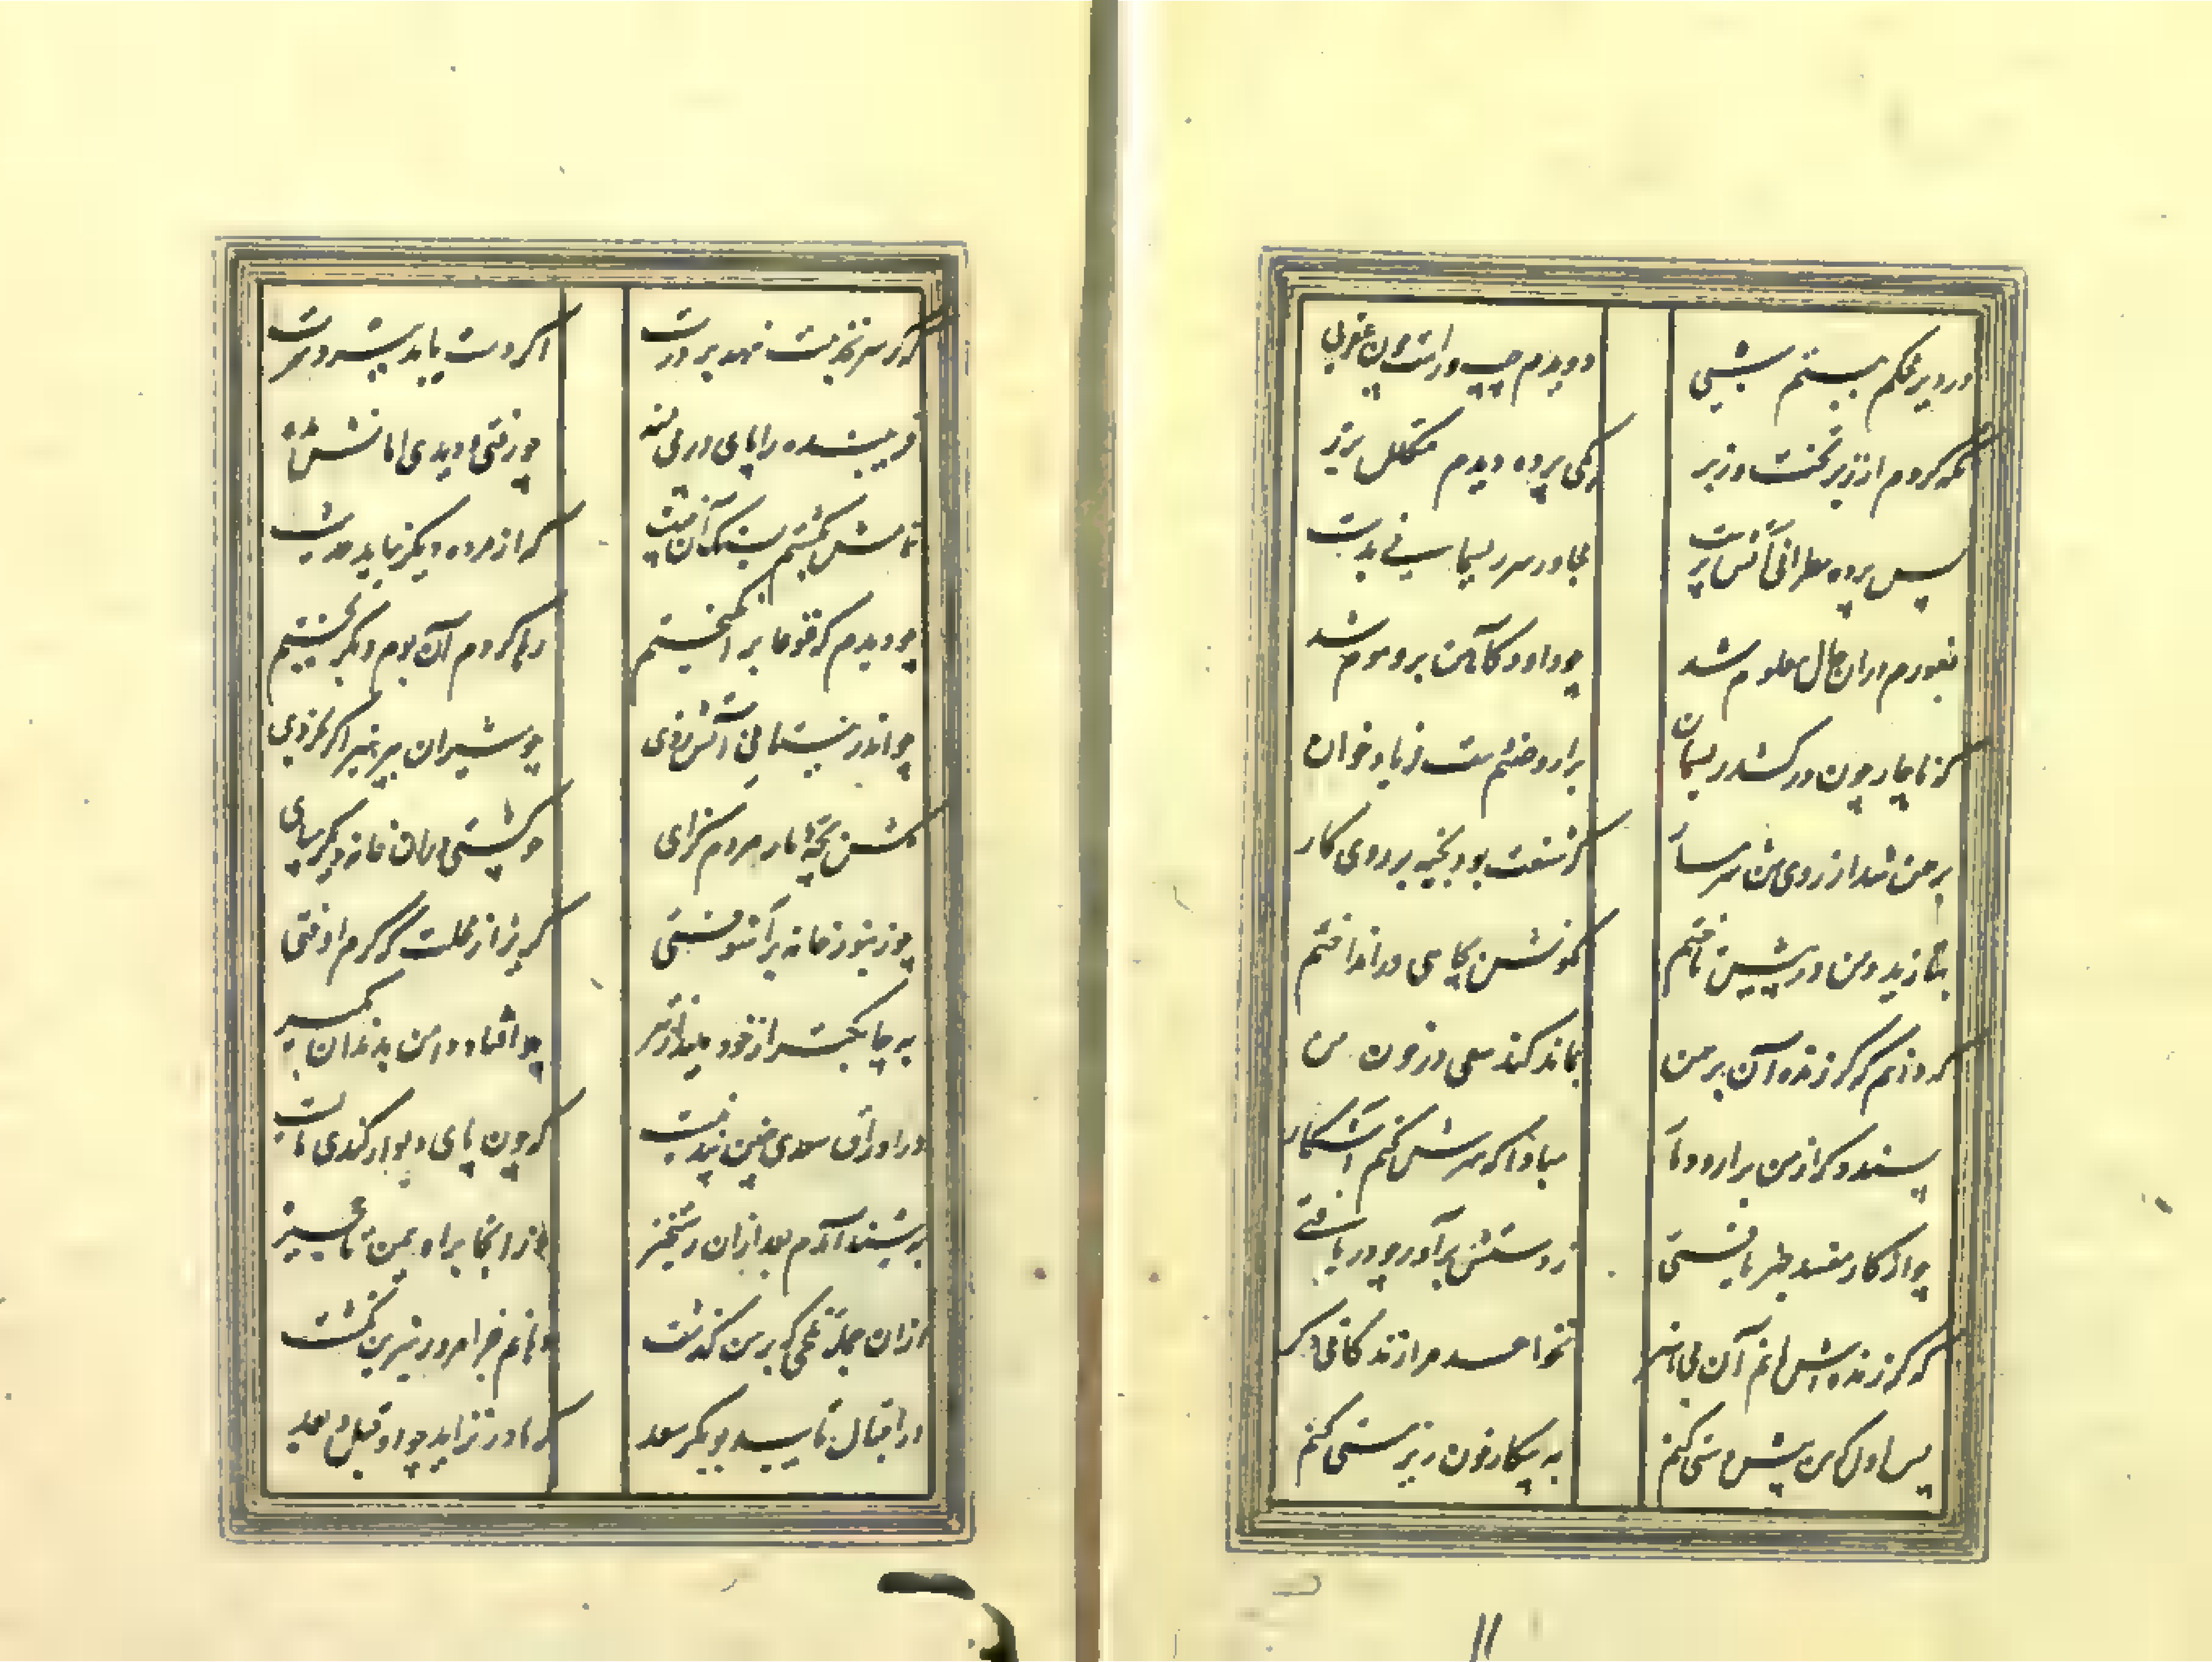 در دیر محکم ببستم شبی دویدم چپ و راست چون عقربی
نگه کردم از زیر تخت و زبر یکی پرده دیدم مکلل بزر
پس پرده مطرانی آتش پرست مجاور سر ریسمانی بدست
بفورم دران حال معلوم شد چو داود کاهن برو موم شد
که ناچار چون در کشد ریسمان برارد صنم دست فریاد خوان
برهمن شد از روی من شرمسار که شنعت بود بخیه بر روی کار
بتازید و من در پیش تاختم نگونش بچاهی در انداختم
که دانم که گر زنده آن برهمن بماند کند سعی در خون من
پسندد که از من برارد دمار مبادا که سرش کنم آشکار
چو از کار مفسد خبر یافتی ز دستش برآور چو دریافتی
که گر زنده‌اش مانم آن بی هنر نخواهد مرا زندگانی دگر
به پیکار خون ریز سستی کنم
وگر سر بخدمت نهد بر درت اگر دست یابد ببرد سرت
فریبنده را پای در پی منه چو رفتی و دیدی امانش مده
تمامش بکشتم بسنگ آن خبیث که از مرده دیگر نیاید حدیث
چو دیدم که غوغا برانگیختم رها کردم آن بوم و بگریختم
چو اندر نیستانی آتش زدی ز شیران بپرهیز اگر بخردی
مکش بچه مار مردم گزای چو کشتی دران خانه دیگر مپای
چو زنبور خانه برآشوفتی گریز از محلت که گرم اوفتی
به چابکتر از خود مینداز تیر چو افتاد دامن بدندان بگیر
در اوراق سعدی چنین پند نیست که چون پای دیوار کندی مایست
به هند آمدم بعد ازان رستخیز وز انجا براه یمن تا حجیز
ازان جمله تلخی که بر من گذشت دهانم جز امروز شیرین نگشت
در اقبال و تایید بوبکر سعد که مادر نزاید چو او قبل و بعد
۱۱